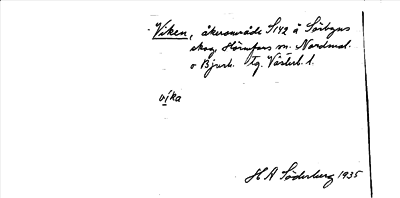 Viken, åkerområde S142 å Sörbyns
skog, Hörnefors sn. Nordmal.
o Bjurh. Tg. Västerb. l.
vika
H A Söderberg 1935